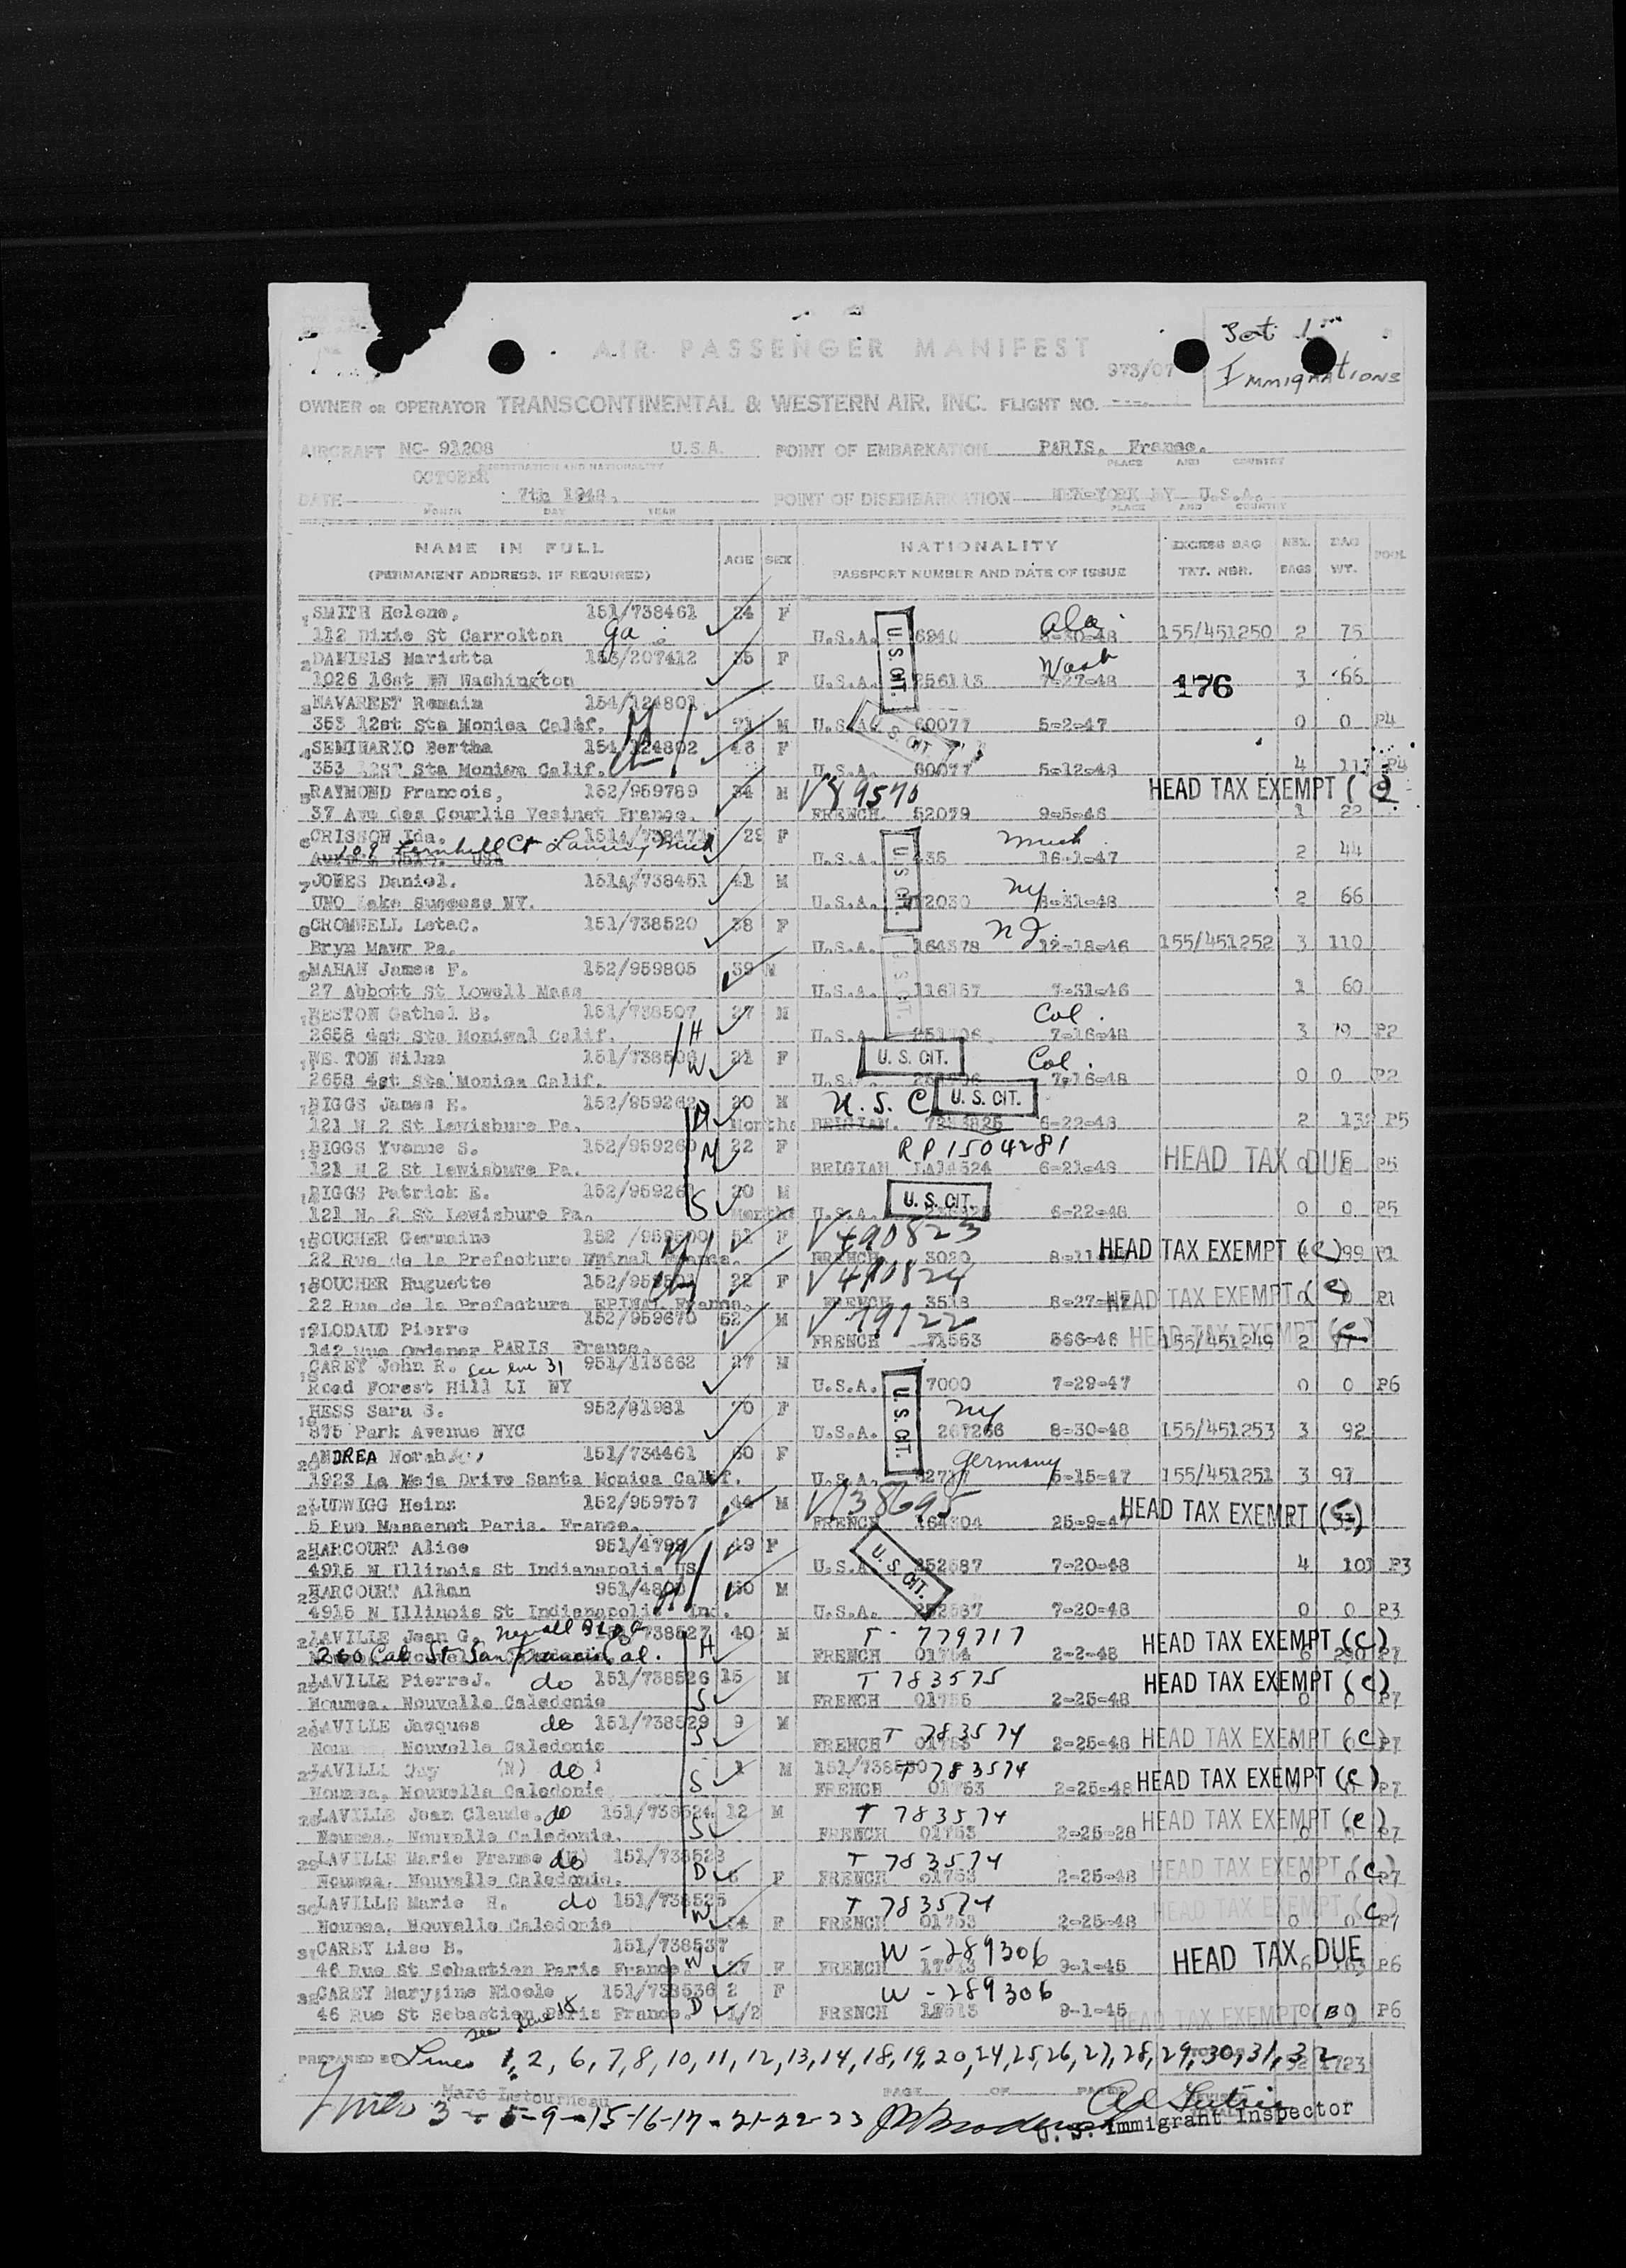 Set 1
Immigrations
AIR PASSENGER MANIFEST
973/07
OWNER OR OPERATOR TRANSCONTINENTAL & WESTERN AIR. INC. FLIGHT NO.
AIRCRAFT NC- 91208 U.S.A. POINT OF EMBARKATION PARIS, France.
REGISTRATION AND NATIONALITY PLACE AND COUNTRY
OCTOBER
DATE 7th 1948. POINT OF DISEMBARKATION NEW-YORK NY U.S.A.
MONTH DAY YEAR PLACE AND COUNTRY
NAME IN FULL AGE SEX NATIONALITY EXCESS BAG NBR. BAG POOL
(PERMANENT ADDRESS. IF REQUIRED) PASSPORT NUMBER AND DATE OF ISSUE TKT. NBR. BAGS WT.
1 SMITH Helene, 151/738461 24 F Ala.
112 Dixie St Carrolton Ga. U.S.A. 6940 8-30-48 155/451250 2 75
U.S. CIT.
2 DANIELS Marietta 153/207412 35 F Wash
1026 16st NW Washington U.S.A. 256113 7-27-48 176 3 66
3 NAVARRET Romain 154/124801
353 12st Sta Monica Calif. 71 M U.S.A. 60077 5-2-47 0 0 P4
U.S. CIT
4 SEMINARIO Bertha 154/124802 48 F
353 12ST Sta Monica Calif. U.S.A. 60077 5-12-48 4 117 P4
5 RAYMOND Francois, 152/959789 34 M V89570 HEAD TAX EXEMPT (C)
37 Ave des Courlis Vesinet France. FRENCH. 52079 9-5-46 1 22
6 CRISSON Ida. 151A/738471 29 F Mich
U.S.A. 435 16-1-47 2 44
U.S. CIT.
7 JONES Daniel. 151A/738451 41 M NY.
UNO Lake Success NY. U.S.A. 12030 8-31-48 2 66
8 CROMWELL LetaC. 151/738520 38 F NJ.
Bryn Mawr Pa. U.S.A. 164378 12-18-46 155/451252 3 110
U.S. CIT.
9 MAHAN James F. 152/959805 39 M
27 Abbott St Lowell Mass U.S.A. 116157 7-31-46 1 60
10 WESTON Gathel B. 151/738507 27 M Cal.
2658 4st Sta Monical Calif. H U.S.A. 7-16-48 3 79 P2
11 WESTON Wilma 151/738508 21 F U.S. CIT. Cal.
2658 4st Sta Monica Calif. W U.S. 7-16-48 0 0 P2
12 BIGGS James E. 152/959262 20 M U.S.C U.S. CIT.
121 N 2 St Lewisbure Pa. Months BRIGIAN. 6-22-48 2 132 P5
13 BIGGS Yvonne S. 152/959260 M 22 F RP1504281
121 N 2 St Lewisbure Pa. BRIGIAN LA14524 6-21-48 HEAD TAX DUE 0 0 P5
14 BIGGS Patrick E. 152/959261 20 M U.S. CIT.
121 N. 2 St Lewisbure Pa. S Months U.S.A. 6-22-48 0 0 P5
15 BOUCHER Germaine 152/959500 51 F V490823
22 Rue de la Prefecture Epinal France. FRENCH 3020 8-11 HEAD TAX EXEMPT (C) 99 P1
16 BOUCHER Huguette 152/959501 22 F V490824
22 Rue de la Prefecture EPINAL France. FRENCH 3518 8-27-47 HEAD TAX EXEMPT (C) 0 P1
17 PLODAUD Pierre 152/959670 52 M V 79122
142 Rue Ordener PARIS France. FRENCH 71553 566-46 HEAD TAX EXEMPT (C) 155/451249 2 77
18 CAREY John R. See line 31 951/113662 27 M
Road Forest Hill LI NY U.S.A. 7000 7-29-47 0 0 P6
U.S. CIT.
19 HESS Sara S. 952/81981 70 F NY
875 Park Avenue NYC U.S.A. 267266 8-30-48 155/451253 3 92
20 ANDREA Norah 151/734461 60 F Germany
1923 La Meja Drive Santa Monica Calif. U.S.A. 5-15-47 155/451251 3 97
21 LUDWIGG Heinz 152/959757 44 M V138695
5 Rue Massenet Paris. France. FRENCH 164304 25-9-47 HEAD TAX EXEMPT (C)
22 HARCOURT Alice 951/4799 49 F
4915 N Illinois St Indianapolis US U.S.A. 252637 7-20-48 4 101 P3
U.S. CIT.
23 HARCOURT Allan 951/4800 50 M
4915 N Illinois St Indianapolis Ind. U.S.A. 252537 7-20-48 0 0 P3
24 LAVILLE Jean G. Newall Bldg 151/738527 40 M T- 779717 HEAD TAX EXEMPT (C)
260 Cal St San Francis Cal. H FRENCH 01754 2-2-48 6 290 P7
25 LAVILLE PierreJ. do 151/738526 15 M T 783575 HEAD TAX EXEMPT (C)
Noumea, Nouvelle Caledonie S FRENCH 01755 2-25-48 0 0 P7
26 LAVILLE Jacques do 151/738529 9 M
Noumea, Nouvelle Caledonie S FRENCH T 783574 01753 2-25-48 HEAD TAX EXEMPT (C) P7
27 LAVILLE Guy (N) do 1 M 151/738530 T 783574
Noumea, Nouvelle Caledonie S FRENCH 01753 2-25-48 HEAD TAX EXEMPT (C) P7
28 LAVILLE Jean Claude. do 151/738524 12 M T 783574
Noumea, Nouvelle Caledonie. S FRENCH 01753 2-25-28 HEAD TAX EXEMPT (C) 0 0 P7
29 LAVILLE Marie France (N) do 151/738528 T 783574
Noumea, Nouvelle Caledonie. D 6 F FRENCH 01753 2-25-48 HEAD TAX EXEMPT (C) 0 0 P7
30 LAVILLE Marie H. do 151/738525 T 783574
Noumea, Nouvelle Caledonie W 34 F FRENCH 01753 2-25-48 HEAD TAX EXEMPT (C) 0 0 P7
31 CAREY Lise B. 151/738537 W-289306
46 Rue St Sebastien Paris France. W 27 F FRENCH 17513 9-1-45 HEAD TAX DUE 6 P6
32 CAREY Marygine Nicole 151/738536 2 F W-289306
46 Rue St Sebastien Paris France. D 1/2 FRENCH 9-1-45 HEAD TAX EXEMPT (B) 0 P6
See line 18
PREPARED BY Lines 1, 2, 6, 7, 8, 10, 11, 12, 13, 14, 18, 19, 20, 24, 25, 26, 27, 28, 29, 30, 31, 32 1723
Marc Letourneau PAGE OF PAGES
Lines 3 - 5-9-15-16-17-21-22-23
U. S. Immigrant Inspector